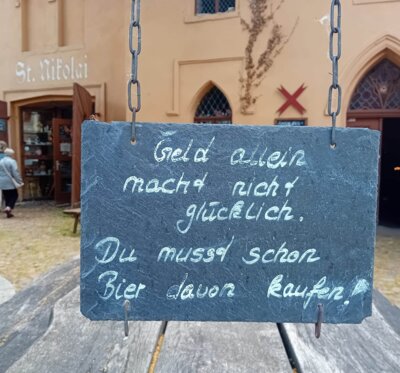 St. Nikolai
Geld allein
macht nicht
glücklich.
Du musst schon
Bier davon kaufen!